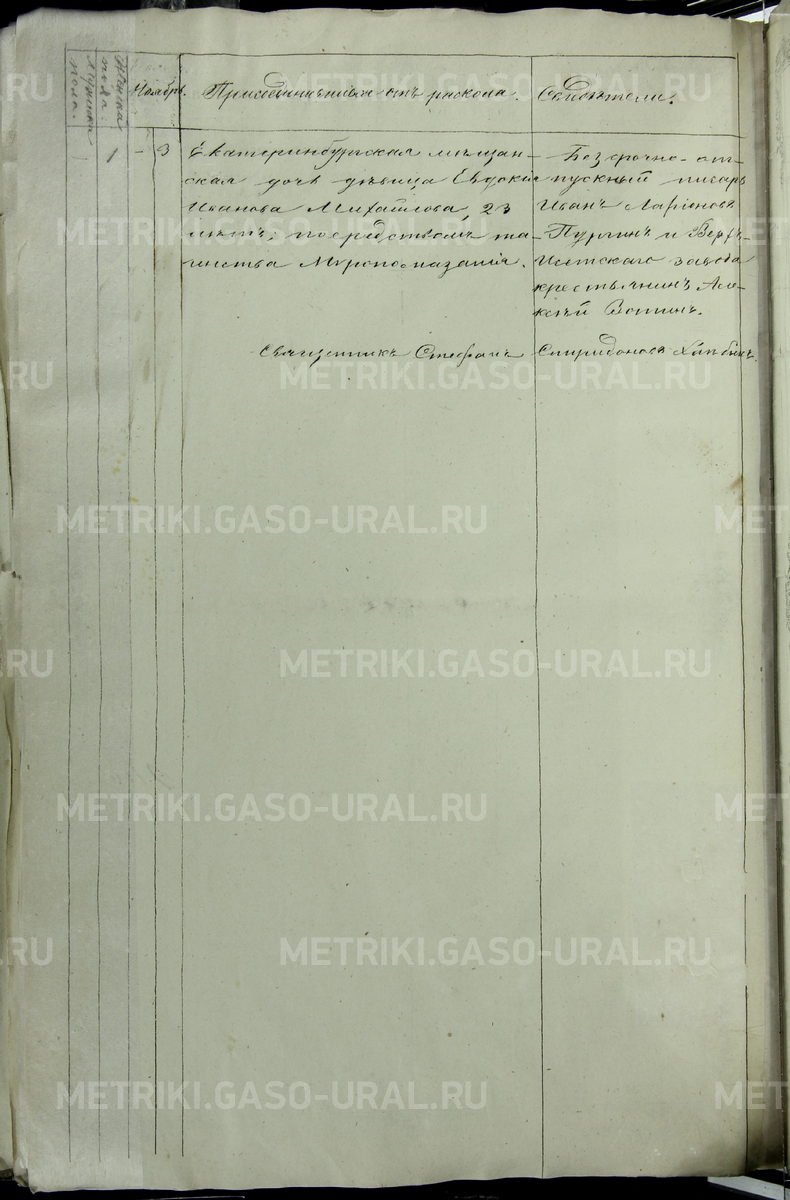 Мужска пола.
Женска пола.
Ноябрь.
Присоединенныхъ отъ раскола.
Свидѣтели.
1 - 3
Екатеринбургская мѣщан-
ская дочь дѣвица Евдокія
Иванова Михайлова, 23
лѣтъ; посредствомъ та-
инства Мѵропомазанія.
Безсрочно-от-
пускный писарь
Иванъ Ларіоновъ
Пургинъ и Верхъ-
Исетскаго завода
крестьянинъ Але-
ксѣй Вотинъ.
Священникъ Стефанъ Спиридоновъ
METRIKI.GASO-URAL.RU